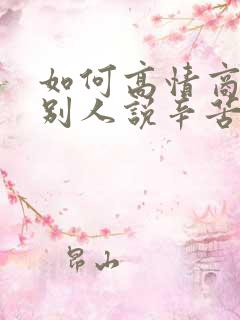 如何高情商
别人说辛苦
昂山